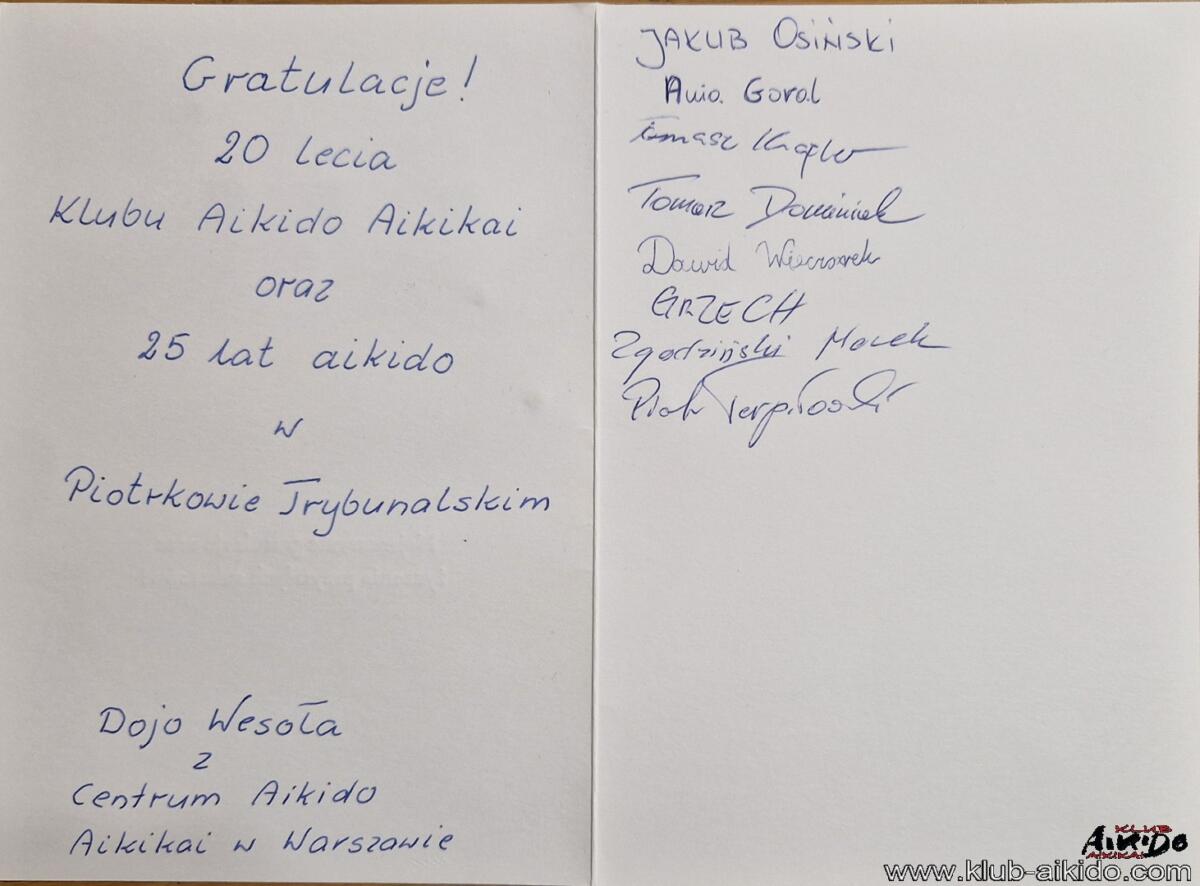 Gratulacje!
20 lecia
Klubu Aikido Aikikai
oraz
25 lat aikido
w
Piotrkowie Trybunalskim
Dojo Wesoła
z
Centrum Aikido
Aikikai w Warszawie
JAKUB OSIŃSKI
Ania Goral
Tomasz
Tomasz Dominiak
Dawid Wieczorek
GRZECH
Zgodziński Marek
Piotr
KLUB
AIKIDO
AIKIKAI
www.klub-aikido.com